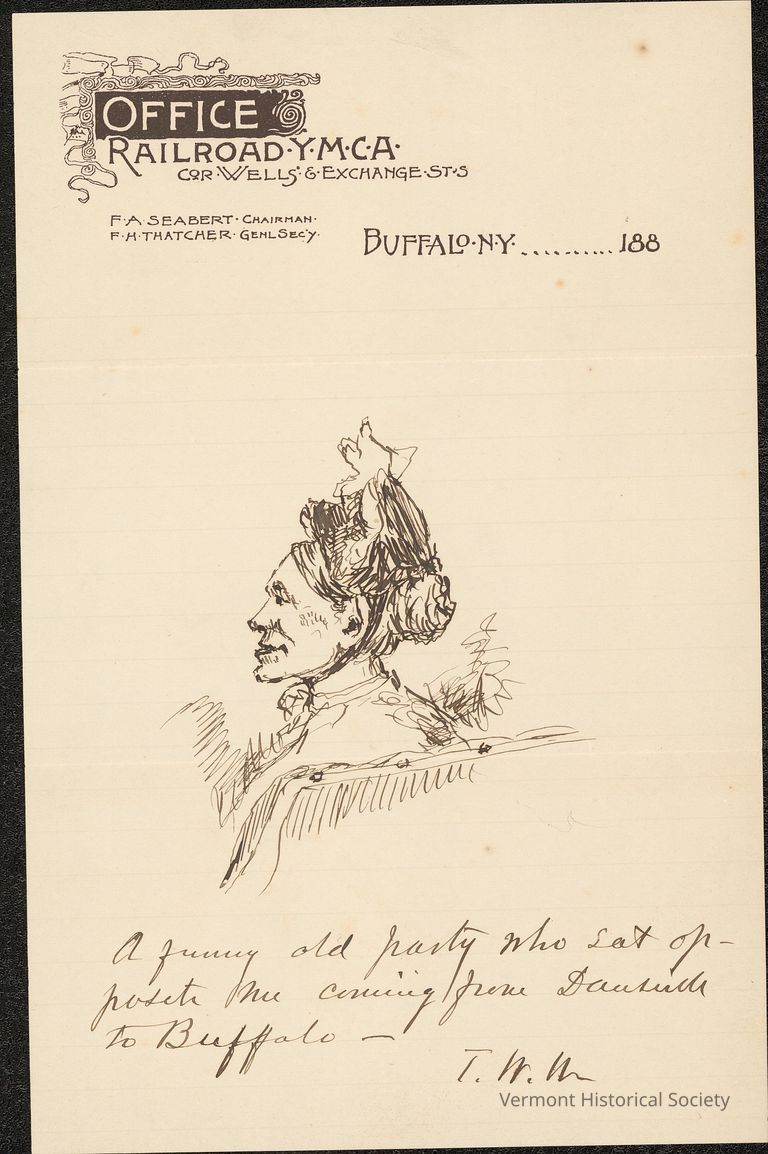 OFFICE
RAILROAD·Y·M·C·A·
COR·WELLS·&·EXCHANGE·ST·S
F·A·SEABERT·CHAIRMAN·
F·H·THATCHER·GENL SEC'Y·
BUFFALO·N·Y· .......... 188
A funny old party who sat op-
posite me coming from Dansville
to Buffalo —
T. W.
Vermont Historical Society